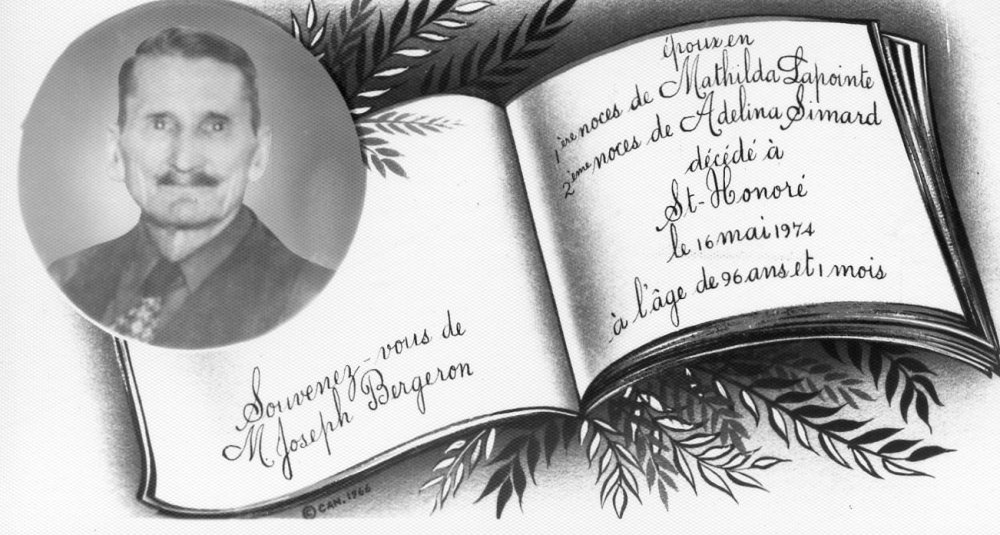 Souvenez-vous de
M. Joseph Bergeron
© CAN. 1966
époux en
1ère noces de Mathilda Lapointe
2ème noces de Adelina Simard
décédé à
St-Honoré
le 16 mai 1974
à l'âge de 96 ans et 1 mois